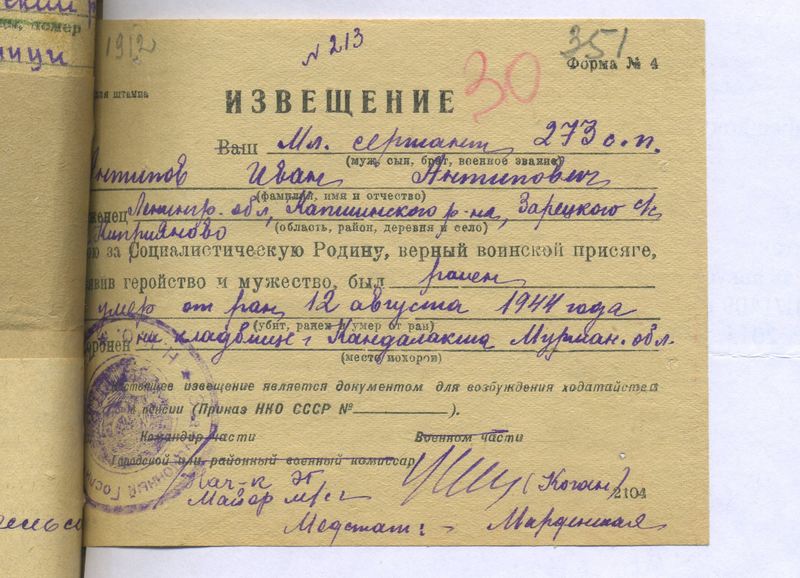 ский р
ди, номер
ници
1912
N 213
30
351
Форма № 4
для штампа
ИЗВЕЩЕНИЕ
Ваш Мл. сержант 273 с.п.
(муж, сын, брат, военное звание)
Антипов Иван Антипович
(фамилия, имя и отчество)
женец Ленингр. обл, Капшинского р-на, Зарецкого с/с
(область, район, деревня и село)
Киприяново
ою за Социалистическую Родину, верный воинской присяге,
явив геройство и мужество, был ранен
умер от ран 12 августа 1944 года
(убит, ранен и умер от ран)
оронен на кладбище г Кандалакша Мурман. обл.
(место похорон)
Настоящее извещение является документом для возбуждения ходатайства
пенсии (Приказ НКО СССР № ).
Командир части Военком части
Городской или районный военный комиссар
Нач-к ЭГ
Майор м/с (Коган) 2104
Медстат: Марденская